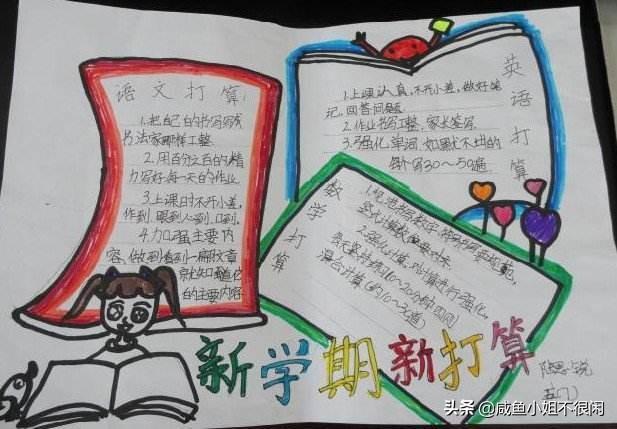 语文打算:
1.把自己的书写写成
书法家那样工整.
2.用百分之百的精
力写好每一天的作业
3.上课时不开小差,
作到眼到心到、口到.
4.加强主要内
容,做到看到一篇文章
就知道它
的主要内容
英语打算
1.上课认真,不开小差,做好笔
记,回答问题
2.作业书写工整,家长签写.
3.强化单词,如果尤不出的
每个写30~50遍
数学打算
2.强化计算,对计算进行强化,
每天坚持练10~20分钟四则
混合计算(约10~20道)
新学期新打算
头条 @咸鱼小姐不很闲